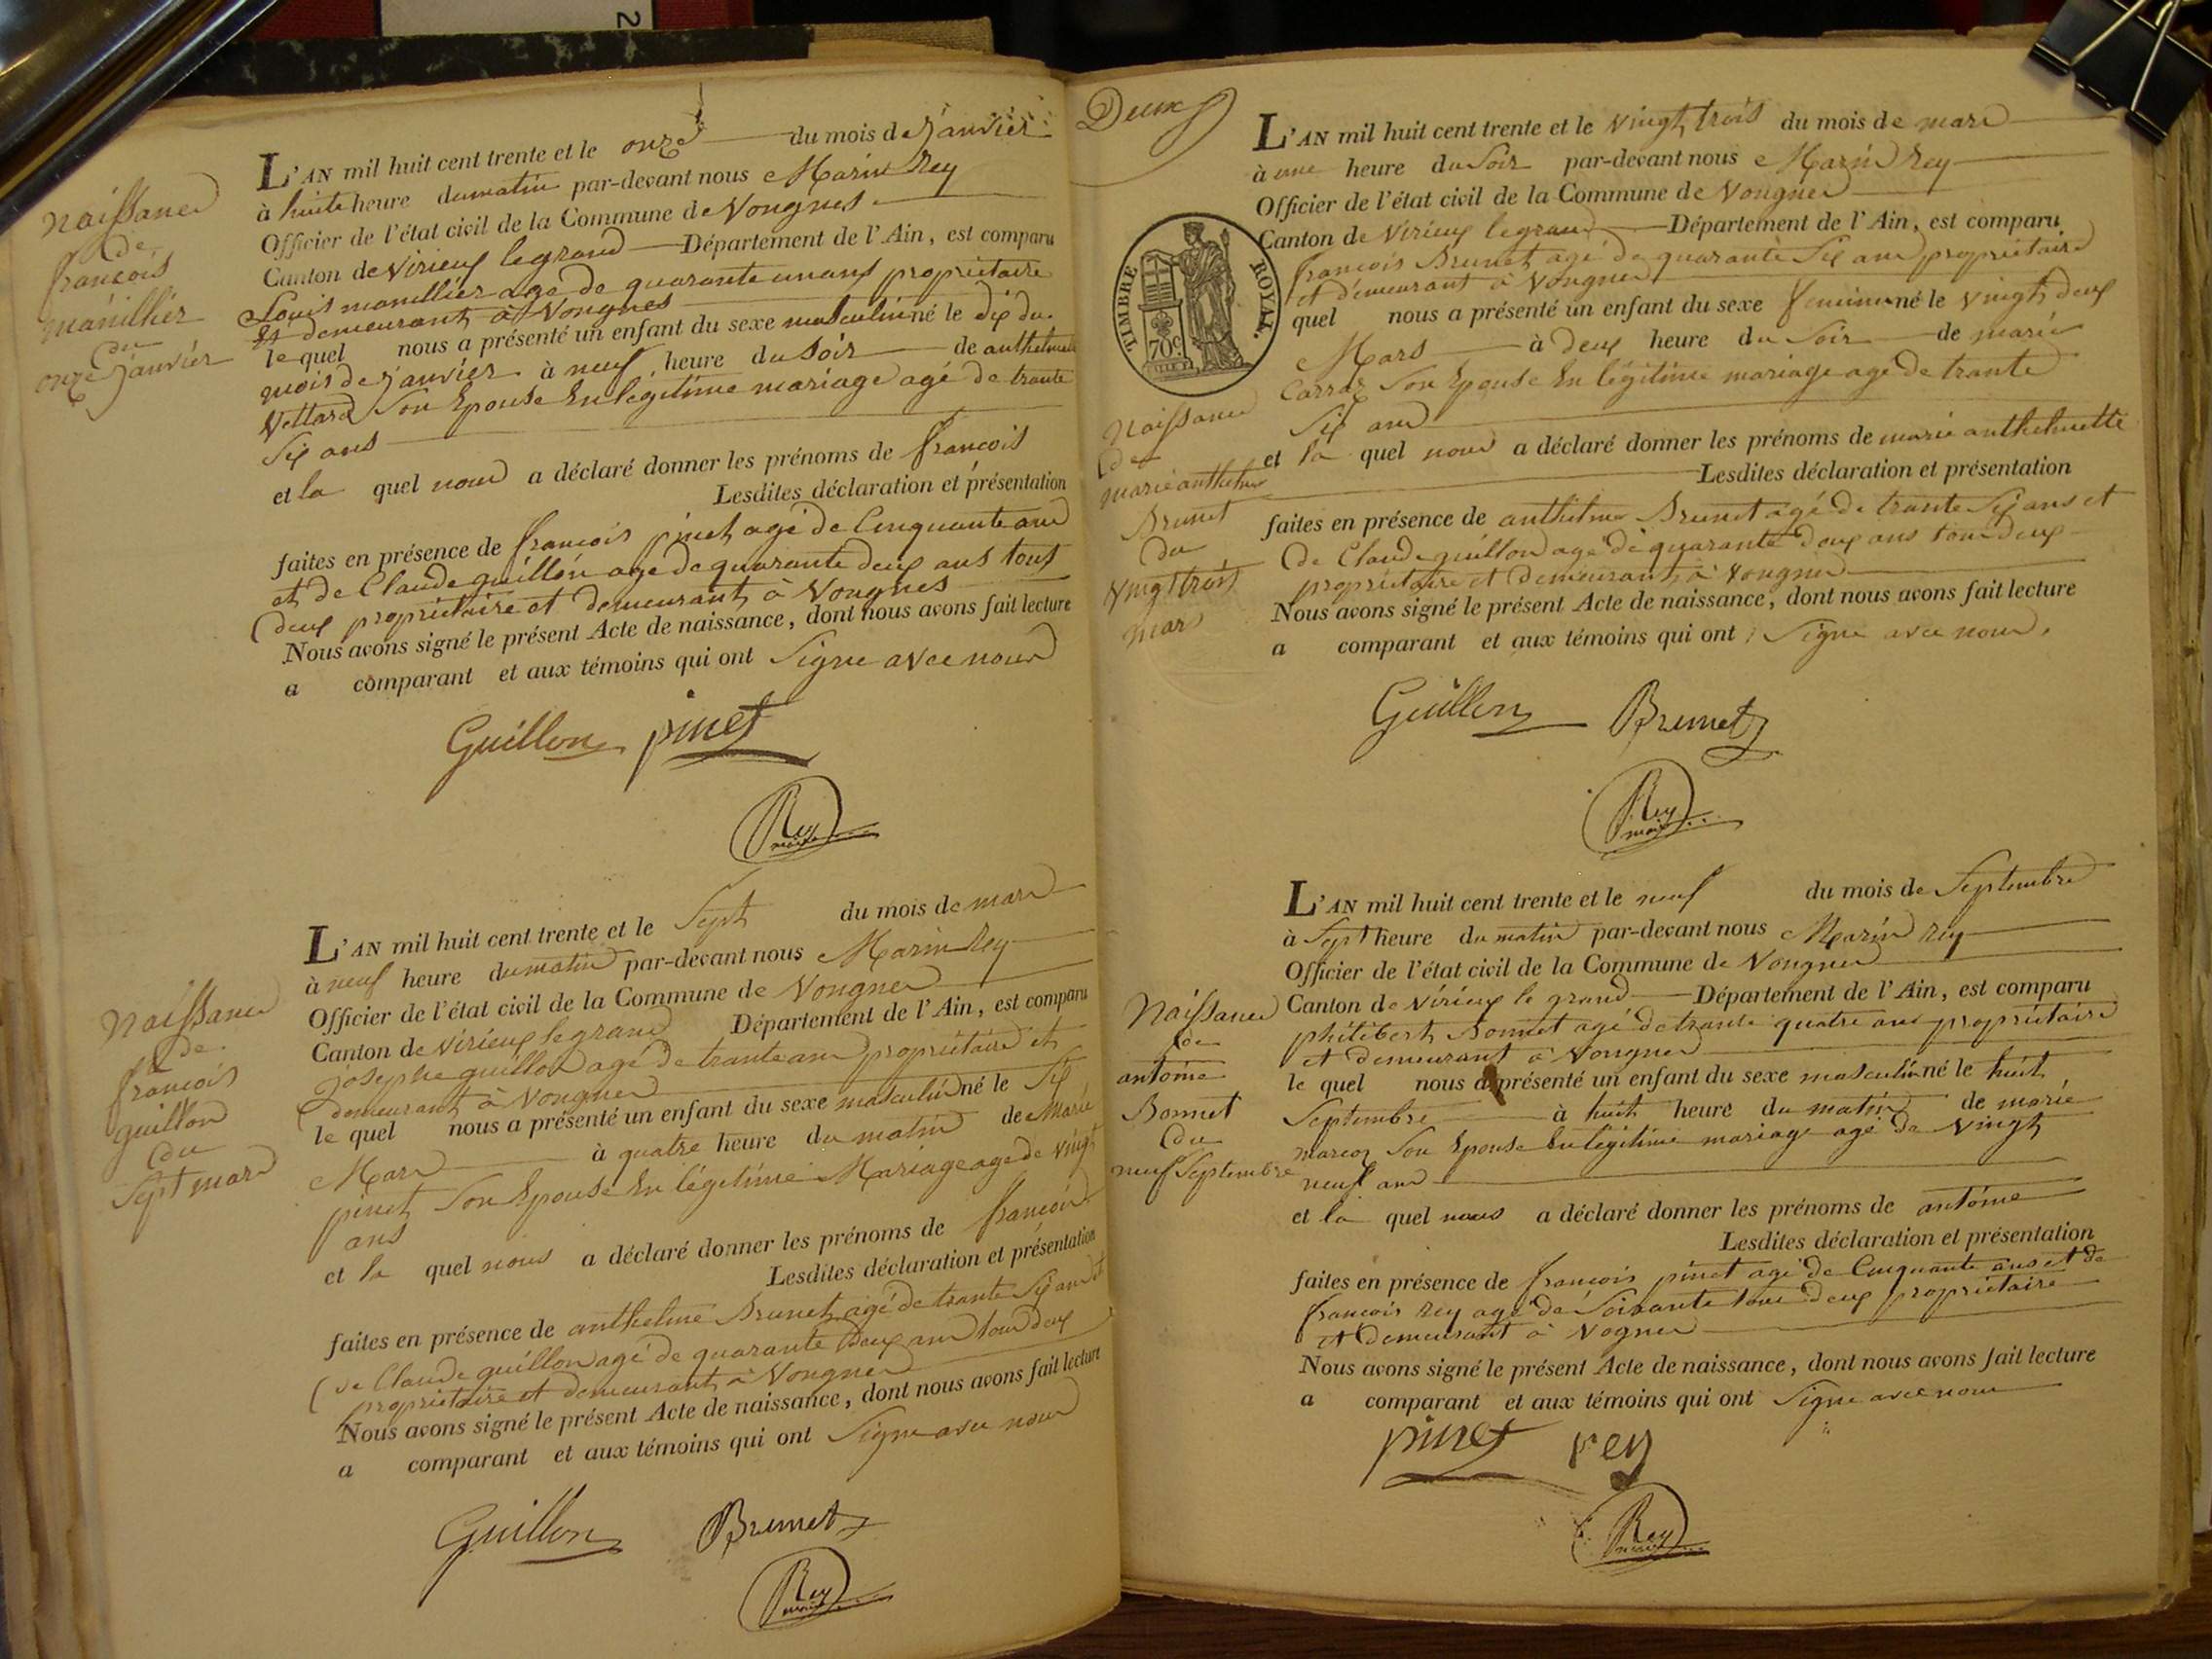 2
Naissance
de
françois
manillier
du
onze janvier
L'AN mil huit cent trente et le onze du mois de janvier
à huite heure du matin par-devant nous Marin Rey
Officier de l'état civil de la Commune de Vongnes
Canton de Virieux legrand Département de l'Ain, est comparu
Louis manillier agé de quarante un ans propriétaire
et demeurant à Vongnes
le quel nous a présenté un enfant du sexe masculin né le dix du
mois de janvier à neuf heure du soir de anthelmette
Vettard Son Epouse En légitime mariage agé de trante
Six ans
et la quel nous a déclaré donner les prénoms de françois
Lesdites déclaration et présentation
faites en présence de françois pinet agé de Cinquante ans
et de Claude guillon agé de quarante deux ans tous
deux propriétaire et demeurant à Vongnes
Nous avons signé le présent Acte de naissance, dont nous avons fait lecture
a comparant et aux témoins qui ont Signe avec nous
Guillon pinet
Rey
maire
Naissance
de
françois
guillon
du
Sept mars
L'AN mil huit cent trente et le Sept du mois de mars
à neuf heure du matin par-devant nous Marin Rey
Officier de l'état civil de la Commune de Vongnes
Canton de Virieux legrand Département de l'Ain, est comparu
josephe guillon agé de trante ans propriétaire et
demeurant à Vongnes
le quel nous a présenté un enfant du sexe masculin né le Six
Mars à quatre heure du matin de Marie
pinet Son Epouse En légitime Mariage agé de vingt
ans
et la quel nous a déclaré donner les prénoms de françois
Lesdites déclaration et présentation
faites en présence de anthelme Brunet agé de trante Six ans et
de Claude guillon agé de quarante deux ans tous deux
propriétaire et demeurant à Vongnes
Nous avons signé le présent Acte de naissance, dont nous avons fait lecture
a comparant et aux témoins qui ont Signe avec nous
Guillon Brunet
Rey
maire
Deux
TIMBRE ROYAL.
70c.
Naissance
de
marie anthelme
Brunet
du
vingt trois
mars
L'AN mil huit cent trente et le vingt trois du mois de mars
à une heure du Soir par-devant nous Marin Rey
Officier de l'état civil de la Commune de Vongnes
Canton de Virieux legrand Département de l'Ain, est comparu
françois Brunet agé de quarante Six ans propriétaire
et demeurant à Vongnes
quel nous a présenté un enfant du sexe feminin né le vingt deux
Mars à deux heure du Soir de marie
Carraz Son Epouse En légitime mariage agé de trante
Six ans
et la quel nous a déclaré donner les prénoms de marie anthelmette
Lesdites déclaration et présentation
faites en présence de anthelme Brunet agé de trante Six ans et
de Claude guillon agé de quarante deux ans tous deux
propriétaire et demeurant à Vongnes
Nous avons signé le présent Acte de naissance, dont nous avons fait lecture
a comparant et aux témoins qui ont Signe avec nous.
Guillon Brunet
Rey
maire
Naissance
de
antoine
Bonnet
du
neuf Septembre
L'AN mil huit cent trente et le neuf du mois de Septembre
à Sept heure du matin par-devant nous Marin Rey
Officier de l'état civil de la Commune de Vongnes
Canton de Virieux le grand Département de l'Ain, est comparu
philibert Bonnet agé de trante quatre ans propriétaire
et demeurant à Vongnes
le quel nous a présenté un enfant du sexe masculin né le huit
Septembre à huit heure du matin de marie
marcoz Son Epouse En légitime mariage agé de vingt
neuf ans
et la quel nous a déclaré donner les prénoms de antoine
Lesdites déclaration et présentation
faites en présence de françois pinet agé de Cinquante ans et de
françois Rey agé de Soixante tous deux propriétaire
et demeurant à Vognes
Nous avons signé le présent Acte de naissance, dont nous avons fait lecture
a comparant et aux témoins qui ont Signe avec nous
pinet rey
Rey
maire